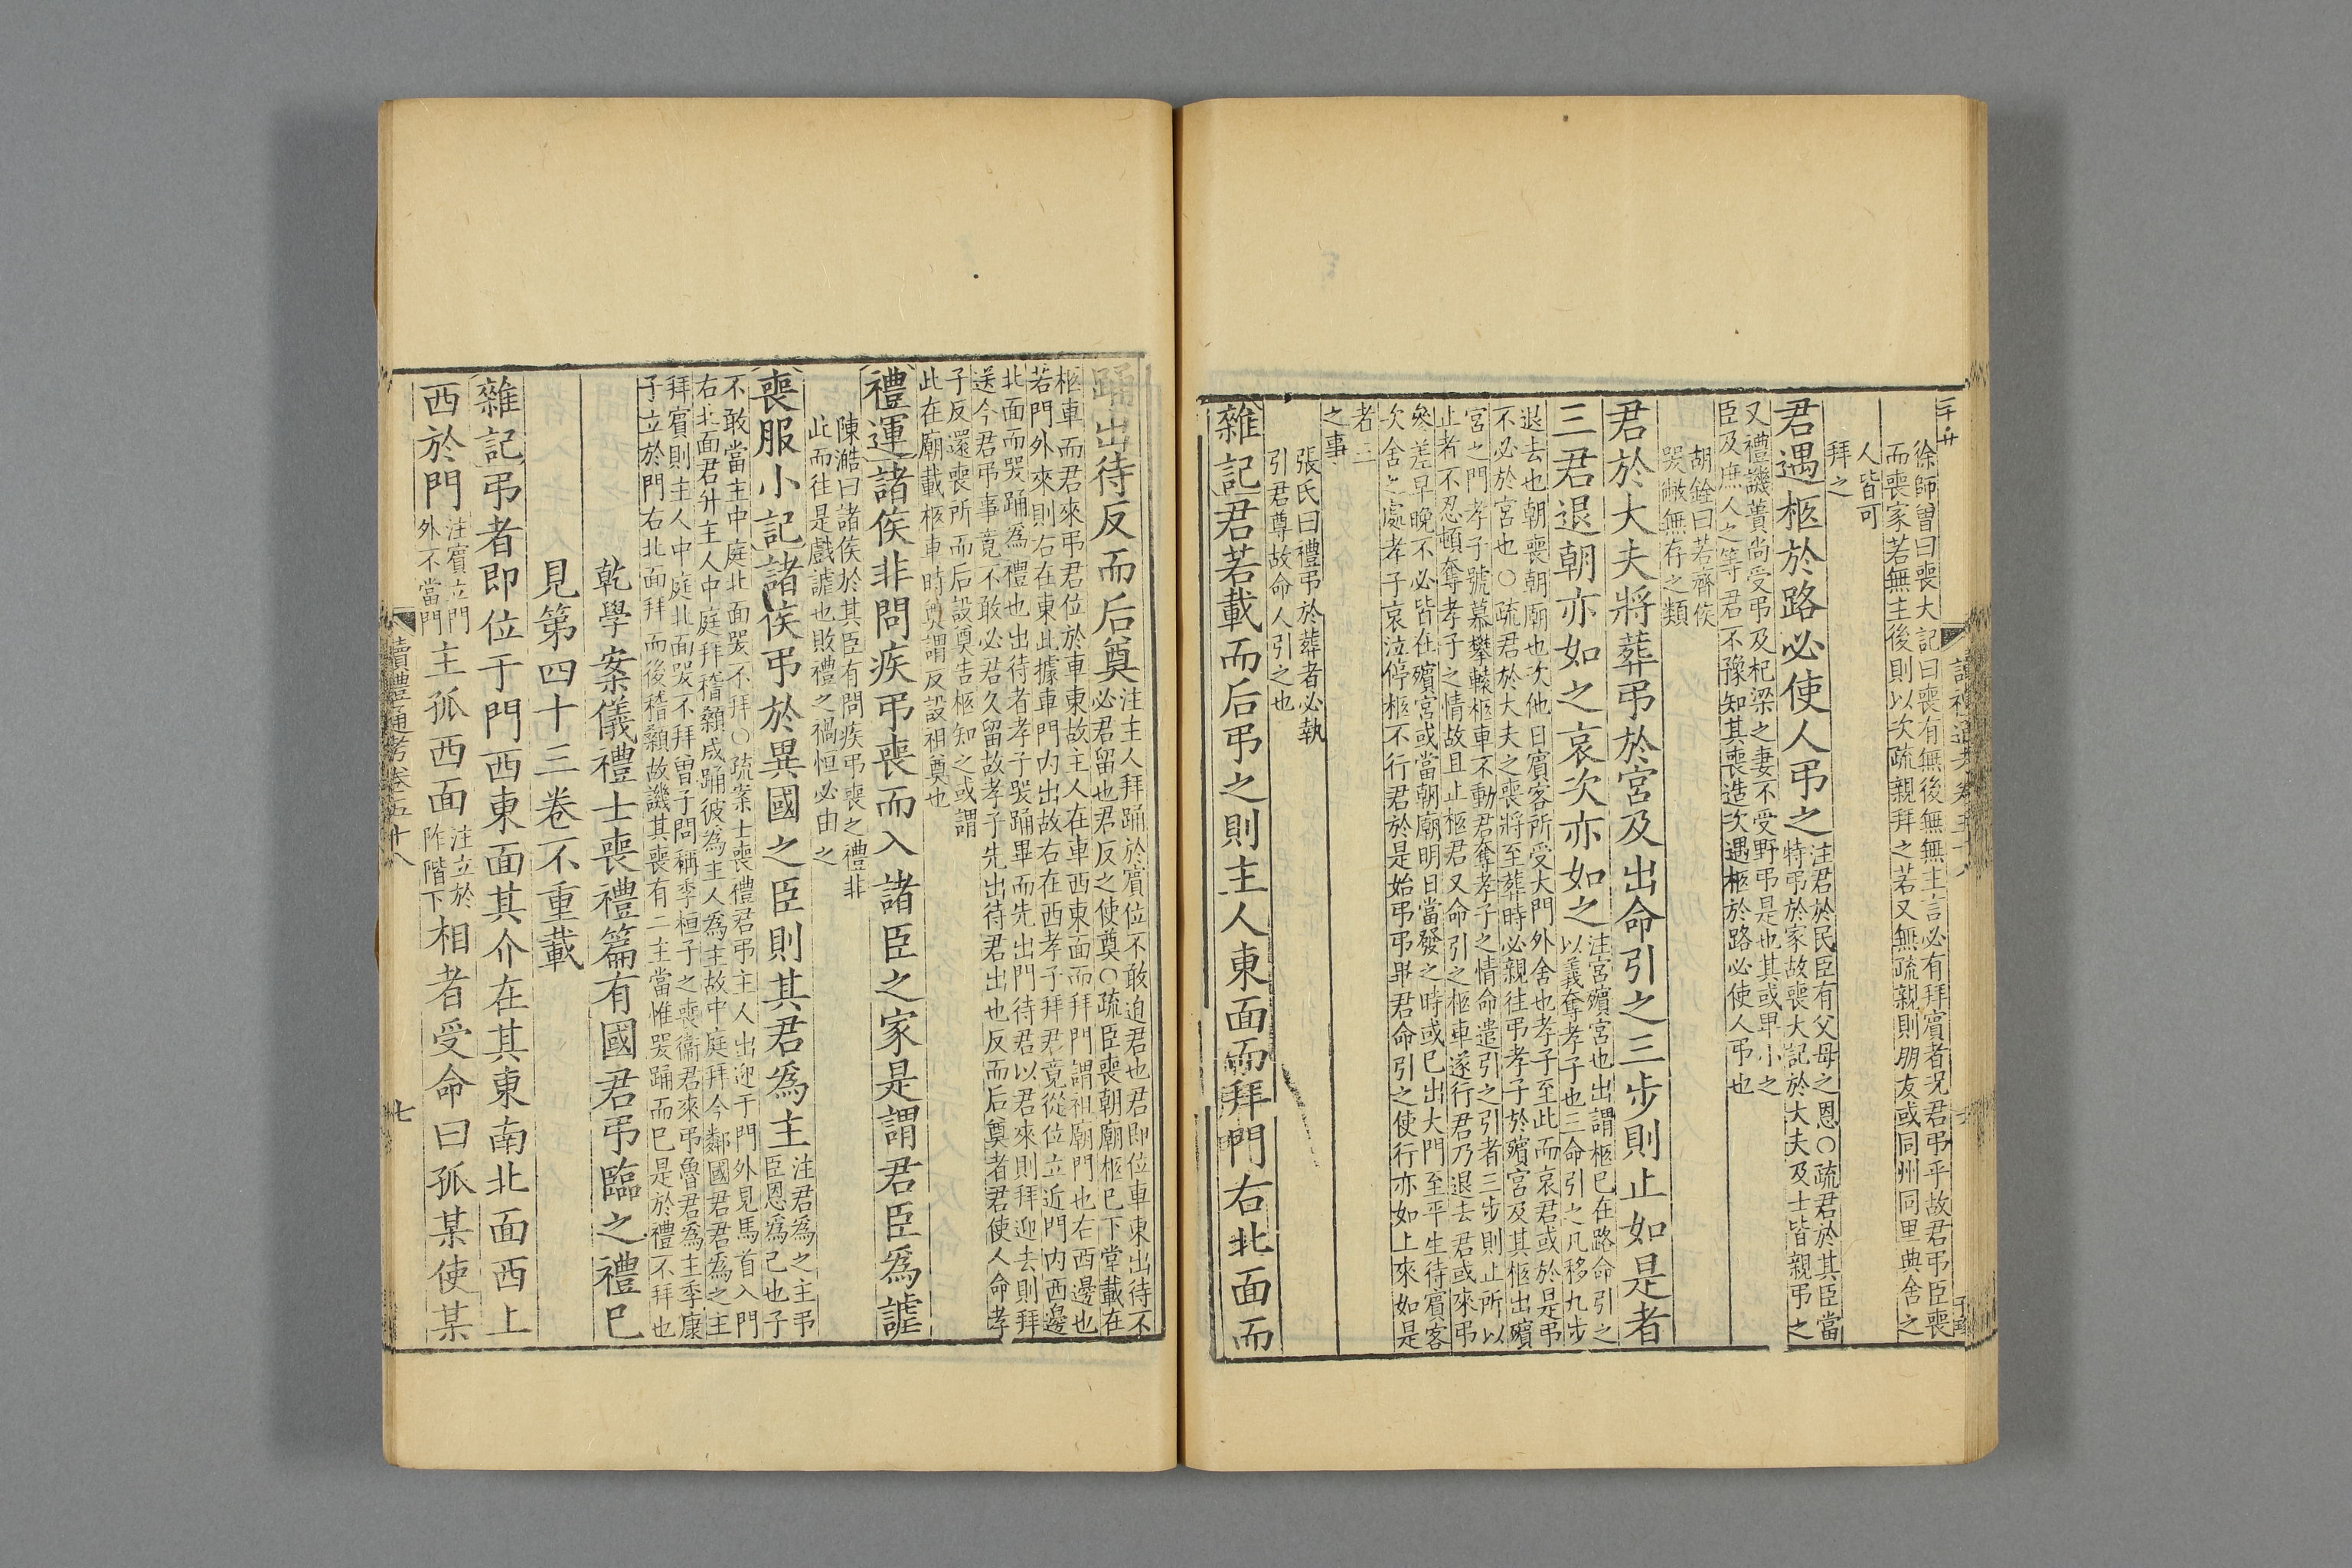 徐師曾曰喪大記曰喪有無後無無主言必有拜賓者况君弔乎故君弔臣喪
而喪家若無主後則以次疏親拜之若又無疏親則朋友或同州同里典舍之
人皆可
拜之
君遇柩於路必使人弔之
注君於民臣有父母之恩○疏君於其臣當
特弔於家故喪大記於大夫及士皆親弔之
又禮譏蕢尚受弔及杞梁之妻不受野弔是也其或卑小之
臣及庶人之等君不豫知其喪造次遇柩於路必使人弔也
胡銓曰若齊侯
哭敝無存之類
君於大夫將葬弔於宮及出命引之三步則止如是者
三君退朝亦如之哀次亦如之
注宮殯宮也出謂柩已在路命引之
以義奪孝子也三命引之凡移九步
退去也朝喪朝廟也次他日賓客所受大門外舍也孝子至此而哀君或於是弔
不必於宮也○疏君於大夫之喪將至葬時必親往弔孝子於殯宮及其柩出殯
宮之門孝子號慕攀轅柩車不動君奪孝子之情命遣引之引者三步則止所以
止者不忍頓奪孝子之情故且止柩君又命引之柩車遂行君乃退去君或來弔
參差早晚不必皆在殯宮或當朝廟明日當發之時或已出大門至平生待賓客
次舍之處孝子哀泣停柩不行君於是始弔弔畢君命引之使行亦如上來如是
者三
之事
張氏曰禮弔於葬者必執
引君尊故命人引之也
雜記君若載而后弔之則主人東面而拜門右北面而
踊出待反而后奠
注主人拜踊於賓位不敢迫君也君即位車東出待不
必君留也君反之使奠○疏臣喪朝廟柩已下堂載在
柩車而君來弔君位於車東故主人在車西東面而拜門謂祖廟門也右西邊也
若門外來則右在東此據車門內出故右在西孝子拜君竟從位立近門內西邊
北面而哭踊為禮也出待者孝子哭踊畢而先出門待君以君來則拜迎去則拜
送今君弔事竟不敢必君久留故孝子先出待君出也反而后奠者君使人命孝
子反還喪所而后設奠告柩知之或謂
此在廟載柩車時奠謂反設祖奠也
禮運諸侯非問疾弔喪而入諸臣之家是謂君臣為謔
陳澔曰諸侯於其臣有問疾弔喪之禮非
此而往是戲謔也敗禮之禍恒必由之
喪服小記諸侯弔於異國之臣則其君為主
注君為之主弔
臣恩為己也子
不敢當主中庭北面哭不拜○疏案士喪禮君弔主人出迎于門外見馬首入門
右北面君升主人中庭拜稽顙成踊彼為主人為主故中庭拜今鄰國君君為之主
拜賓則主人中庭北面哭不拜曾子問稱季桓子之喪衞君來弔魯君為主季康
子立於門右北面拜而後稽顙故譏其喪有二主當惟哭踊而已是於禮不拜也
乾學案儀禮士喪禮篇有國君弔臨之禮已
見第四十三卷不重載
雜記弔者即位于門西東面其介在其東南北面西上
西於門
注賓立門
外不當門
主孤西面
注立於
阼階下
相者受命曰孤某使某
讀禮通考卷五十八
七